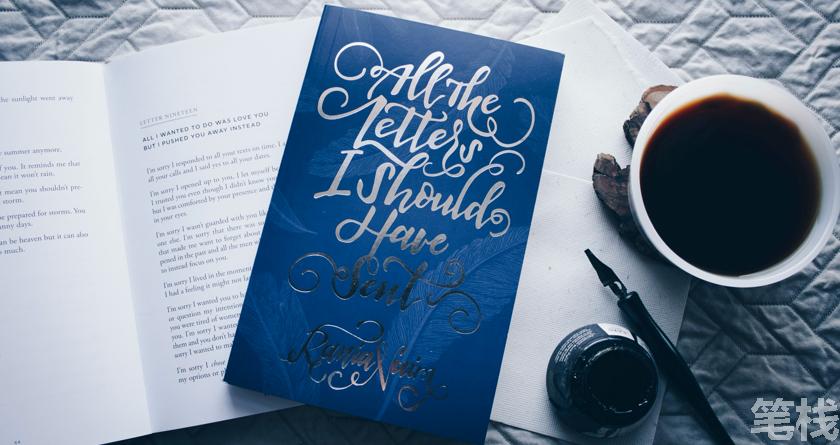 the sunlight went away
summer anymore.
f you. It reminds me that
ean it won't rain.
t mean you shouldn't pre-
storm.
be prepared for storms. You
nny days.
can be heaven but it can also
much.
64
LETTER NINETEEN
ALL I WANTED TO DO WAS LOVE YOU
BUT I PUSHED YOU AWAY INSTEAD
I'm sorry I responded to all your texts on time. I
all your calls and I said yes to all your dates.
I'm sorry I opened up to you, I let myself be
I trusted you even though I didn't know you
but I was comforted by your presence and th
in your eyes.
I'm sorry I wasn't guarded with you like
one else. I'm sorry that there was so
that made me want to forget about
pened in the past and all the men w
to instead focus on you.
I'm sorry I lived in the moment
I had a feeling it might not las
I'm sorry I wanted you to h
or question my intention
you were tired of women
them and you don't ha
sorry I wanted to ma
I'm sorry I chose
my options or p
All The
Letters
I Should
Have
Sent
Rania Naim
笔栈